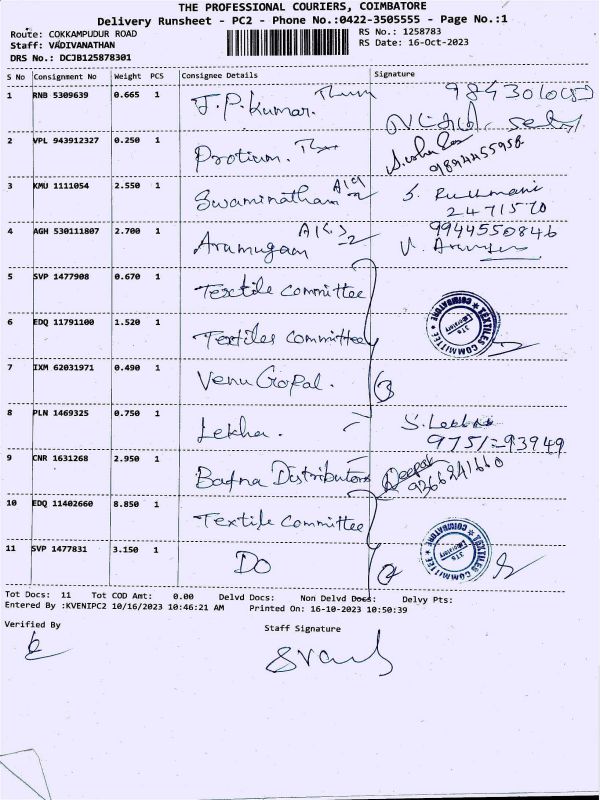 THE PROFESSIONAL COURIERS, COIMBATORE
Delivery Runsheet - PC2 - Phone No.:0422-3505555 - Page No.:1
Route: COKKAMPUDUR ROAD RS No.: 1258783
Staff: VADIVANATHAN RS Date: 16-Oct-2023
DRS No.: DCJB125878301
S No Consignment No Weight PCS Consignee Details Signature
1 RNB 5309639 0.665 1 J.P. Kumar.
2 VPL 943912327 0.250 1 Protium.
9894455958
3 KMU 1111054 2.550 1 Swaminatham S. Rukhmani
2471570
4 AGH 530111807 2.700 1 Arumugam 9944550846
5 SVP 1477908 0.670 1 Textile Committee
TEXTILES COMMITTEE * COIMBATORE * Laboratory
6 EDQ 11791100 1.520 1 Textiles committee
7 IXM 62031971 0.490 1 Venu Gopal. 3
8 PLN 1469325 0.750 1 Lekha. S. Lekha
9 CNR 1631268 2.950 1 Bafna Distributors Deepak
9366241660
10 EDQ 11402660 8.850 1 Textile Committee
TEXTILES COMMITTEE * COIMBATORE * Laboratory
11 SVP 1477831 3.150 1 DO
Tot Docs: 11 Tot COD Amt: 0.00 Delvd Docs: Non Delvd Docs: Delvy Pts:
Entered By :KVENIPC2 10/16/2023 10:46:21 AM Printed On: 16-10-2023 10:50:39
Verified By Staff Signature